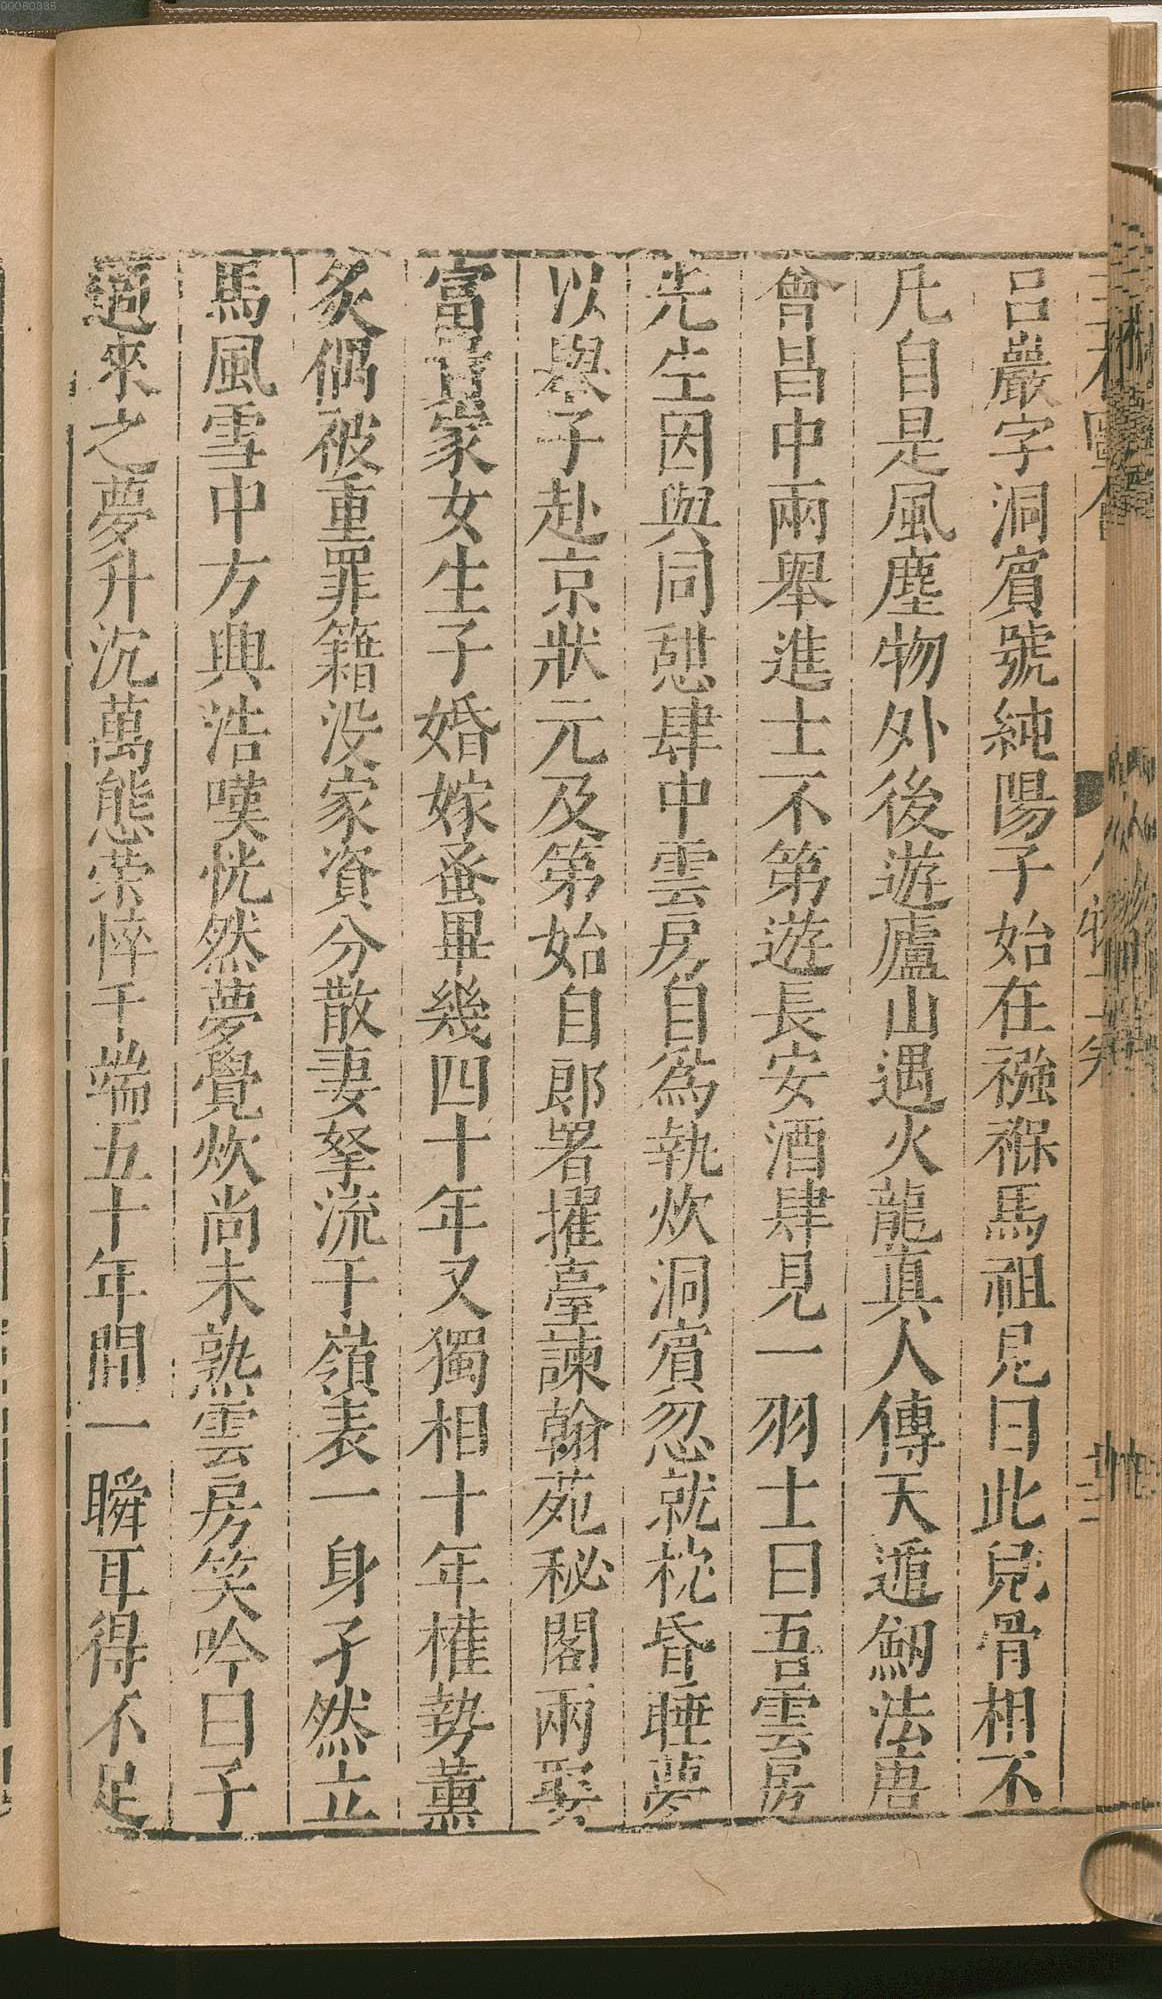 呂巖字洞賓號純陽子始在襁褓馬祖見曰此兒骨相不
凡自是風塵物外後遊廬山遇火龍真人傳天遁劒法唐
會昌中兩舉進士不第遊長安酒肆見一羽士曰吾雲房
先生因與同憇肆中雲房自為執炊洞賓忽就枕昏睡夢
以舉子赴京狀元及第始自郎署擢臺諫翰苑秘閣兩娶
富貴家女生子婚嫁蚤畢幾四十年又獨相十年權勢薰
炙偶被重罪籍没家資分散妻孥流于嶺表一身孑然立
馬風雪中方興浩嘆恍然夢覺炊尚未熟雲房笑吟曰子
適來之夢升沉萬態荣悴千端五十年間一瞬耳得不足
00080385